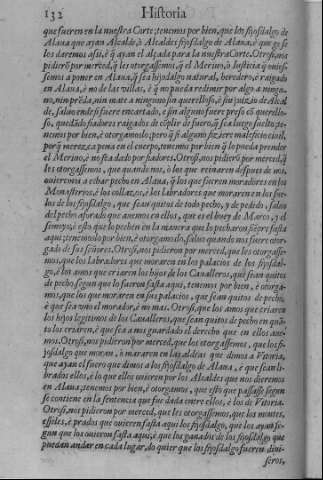 132 Historia
que fueren en la nuestra Corte; tenemos por bien, que los fijosdalgo de
Alaua que ayan Alcalde, ò Alcaldes fijosdalgo de Alaua: è que ge
los daremos assi, è q̃ ayan el alçada para la nuestra Corte. Otrosi, nos
pidierõ por merced, q̃ les otorgassemos, q̃ el Merino, ò Iusticia q̃
semos a poner en Alaua, q̃ sea hijodalgo natural, heredero, è raigado
en Alaua, è no de las villas, è q̃ no pueda redimir por algo a ningu-
no, nin prẽda, nin mate a ninguno sin querelloso, è sin juizio de Alcal
de, saluo ende si fuere encartado, e sin alguno fuere preso cõ querello-
so, quedãdo fiadores raigados de cõplir de fuero, q̃ sea luego suelto; te-
nemos por bien, è otorgamoslo; pero q̃ si alguno fiziere maleficio civil,
porq̃ merezca pena en el cuerpo, tenemos por bien q̃ lo pueda prender
el Merino, è no sea dado por fiadores. Otrosi, nos pidierõ por merced, q̃
les otorgassemos, que quando nos, ò los que reinaren despues de nos,
quieremos a echar pecho en Alaua, q̃ los que fueren moradores en los
Monasterios, è los collazos, è los labradores que moraren en los sue-
los de los fijosdalgo, que sean quitos de todo pecho, y de pedido, saluo
del pecho aforado que auemos en ellos, que es el buey de Março, y el
semoyo; è esto que lo pechen en la manera que lo pecharon siẽpre fasta
aqui; tenemoslo por bien, è otorgamoslo, saluo quando nos fuere otor-
gado de sus señores. Otrosi, nos pidieron por merced, que les otorgasse-
mos, que los labradores que moraren en los palacios de los fijosdal-
go, è los amos que criaren los hijos de los Caualleros, que sean quitos
de pecho segun que lo fueron fasta aqui, tenemos por bien, è otorga-
mos, que los que moraren en sus palacios, que sean quitos de pecho,
è que sea vno el morador, è no mas. Otrosi, que los amos que criaren
los hijos legitimos de los Caualleros, que sean quitos de pecho en quã-
to los criaren, è que sea a nos guardado el derecho que en ellos aue-
mos. Otrosi, nos pidieron por merced, que les otorgassemos, que los fi-
josdalgo que moran, ò moraren en las aldeas que dimos a Vitoria,
que ayan el fuero que dimos a los fijosdalgo de Alaua, è que sean li-
brados ellos, è lo que ellos ouieren por los Alcaldes que nos dieremos
en Alaua; tenemos por bien, è otorgamos, que esto que passasse segun
se contiene en la sentencia que fue dada entre ellos, è los de Vitoria.
Otrosi, nos pidieron por merced, que les otorgassemos, que los montes,
è seles, è prados que ouieron fasta aqui los fijosdalgo, que los ayan se-
gun que los ouieron fasta aqui, è que los ganados de los fijosdalgo que
puedan andar en cada lugar, do quier que los fijosdalgo fueren diui-
seros,